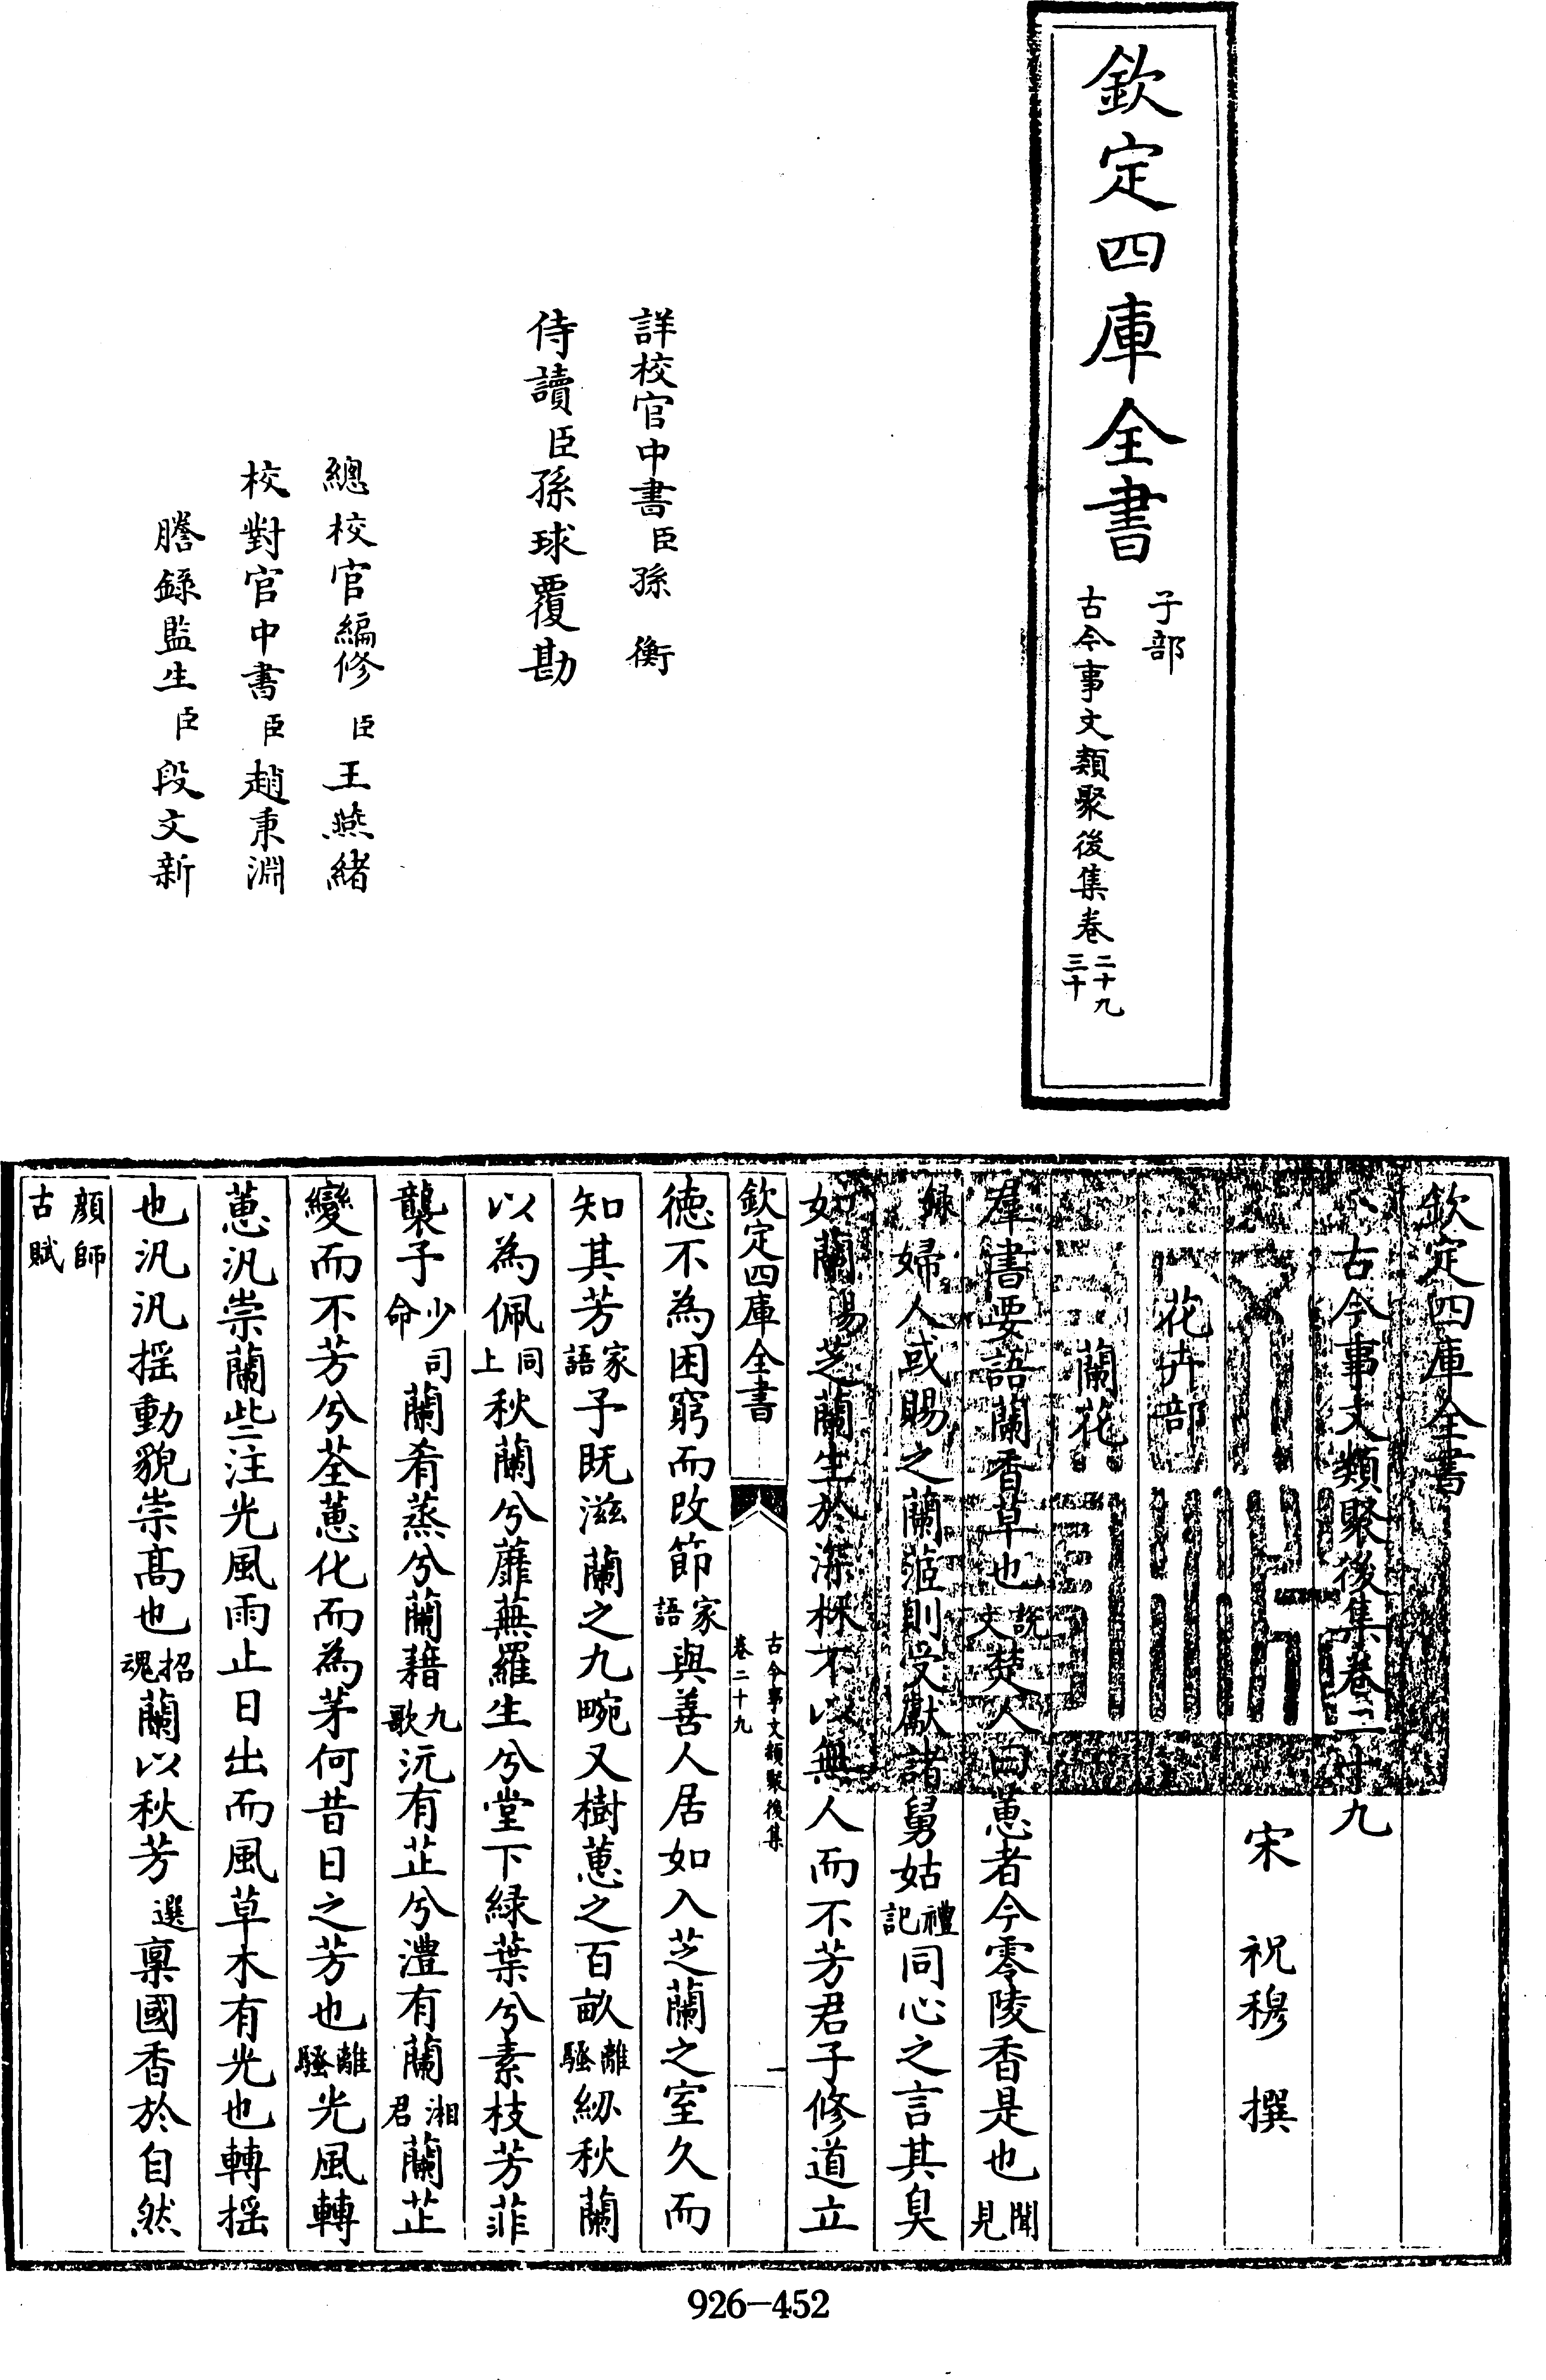 欽定四庫全書
子部
古今事文類聚後集卷二十九三十
詳校官中書臣孫衡
侍讀臣孫球覆勘
總校官編修臣王燕緒
校對官中書臣趙秉淵
謄錄監生臣段文新
欽定四庫全書
古今事文類聚後集卷二十九
宋 祝穆 撰
花卉部
蘭花
羣書要語蘭香草也說文楚人曰蕙者今零陵香是也聞見
錄婦人或賜之蘭茝則受獻諸舅姑禮記同心之言其臭
如蘭易芝蘭生於深林不以無人而不芳君子修道立
欽定四庫全書
古今事文類聚後集
卷二十九
一
徳不為困窮而改節家語與善人居如入芝蘭之室久而
知其芳家語予既滋蘭之九畹又樹蕙之百畝離騷紉秋蘭
以為佩同上秋蘭兮蘼蕪羅生兮堂下緑葉兮素枝芳菲
襲予少司命蘭肴蒸兮蘭藉九歌沅有芷兮澧有蘭湘君蘭芷
變而不芳兮荃蕙化而為茅何昔日之芳也離騷光風轉
蕙汎崇蘭些注光風雨止日出而風草木有光也轉揺
也汎汎揺動貌崇髙也招魂蘭以秋芳選稟國香於自然
顔師古賦
926-452